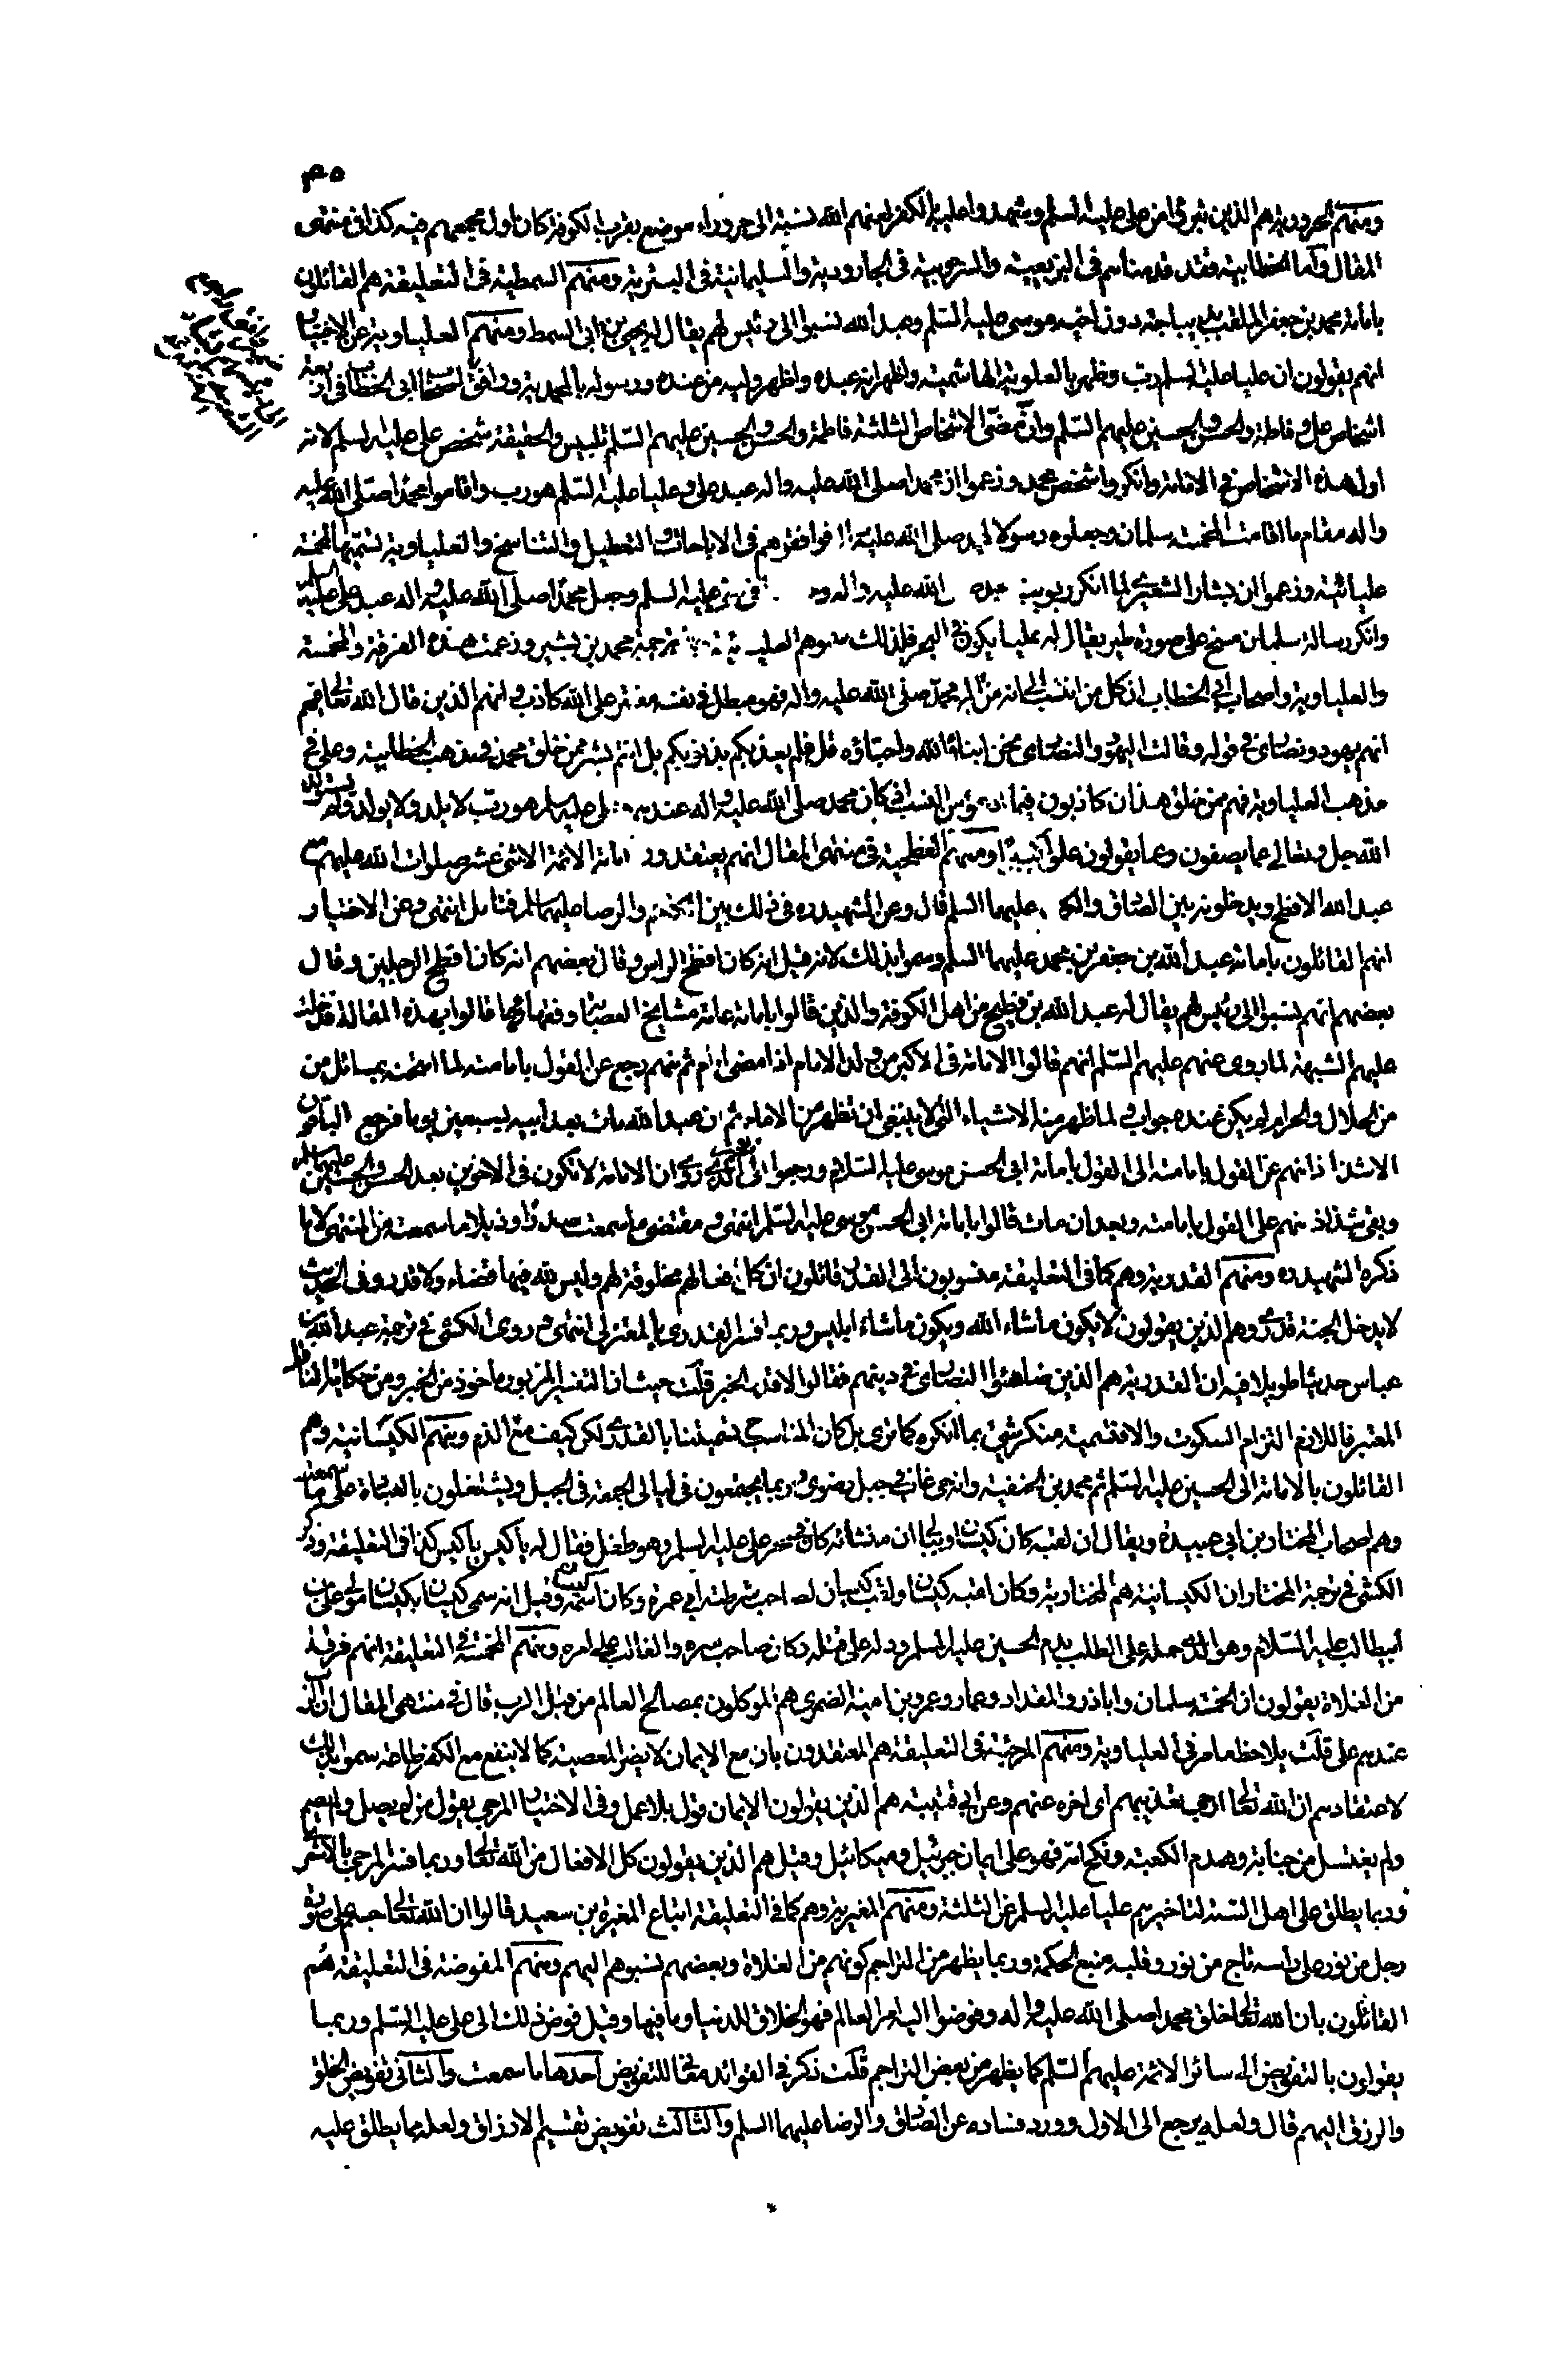 ومنهم الحرورية هم الذين تبرؤا من علي عليه السلم وشهدوا عليه بالكفر لعنهم الله نسبة الى حروراء موضع بقرب الكوفة كان اول مجمعهم فيه كذا في منتهى
المقال واما الخطابية فقد قدمناهم في البزيعية والسرحوبية في الجارودية والسليمانية في البترية ومنهم السمطية في التعليقة هم القائلون
بامامة محمد بن جعفر الملقب بديباجة دون اخيه موسى عليه السلم وعبد الله نسبوا الى رئيس لهم يقال له يحيى بن ابي السمط ومنهم العلياوية عن الاختيار
انهم يقولون ان عليا عليه السلم رب وظهر بالعلوية الهاشمية واظهر انه عبده واظهر وليه من عنده ورسوله بالمحمدية ووافق اصحاب ابي الخطاب في اربعة
اشخاص علي وفاطمة والحسن والحسين عليهم السلم وان معنى الاشخاص الثلثة فاطمة والحسن والحسين عليهم السلم تلبيس والحقيقة شخص علي عليه السلم لانه
اول هذه الاشخاص في الامامة وانكروا شخص محمد وزعموا ان محمدا صلى الله عليه واله عبد علي وعليا عليه السلم هو رب واقاموا محمدا صلى الله عليه
واله مقام ما اقامت المخمسة سلمان وجعلوه رسولا لمحمد صلى الله عليه فوافقوهم في الاباحات والتعطيل والتناسخ والعلياوية تسميها المخمسة
عليائية وزعموا ان بشار الشعيري لما انكر ربوبية محمد صلى الله عليه واله و في علي عليه السلم وجعل محمدا صلى الله عليه واله عبد علي عليه السلم
وانكر رسالة سلمان مسخ على صورة طير يقال له عليا يكون في البحر فلذلك سموهم العليائية ترجمة محمد بن بشير وزعمت هذه الفرقة والمخمسة
والعلياوية واصحاب ابي الخطاب ان كل من انتسب الى انه من ال محمد صلى الله عليه واله فهو مبطل في نفسه مفتر على الله كاذب وانهم الذين قال الله تعالى فيهم
انهم يهود ونصارى في قوله وقالت اليهود والنصارى نحن ابناء الله واحباؤه قل فلم يعذبكم بذنوبكم بل انتم بشر ممن خلق محمد في مذهب الخطابية وعلي في
مذهب العلياوية فهم ممن خلق هذان كاذبون فيما ادعوا من النسب اذ كان محمد صلى الله عليه واله عندهم وعلي عليه السلم هو رب لا يلد ولا يولد ولا يستولد
الله جل وتعالى عما يصفون وعما يقولون علوا كبيرا ومنهم الفطحية في منتهى المقال انهم يعتقدون امامة الائمة الاثني عشر صلوات الله عليهم مع
عبد الله الافطح ويدخلونه بين الصادق والكاظم عليهما السلم قال وعن الشهيد ره في ذلك بين الكاظم والرضا عليهما السلم فتامل انتهى وعن الاختيار
انهم القائلون بامامة عبد الله بن جعفر بن محمد عليهما السلم وسموا بذلك لانه قيل انه كان افطح الراس وقال بعضهم انه كان افطح الرجلين وقال
بعضهم انهم نسبوا الى رئيس لهم يقال له عبد الله بن فطيح من اهل الكوفة والذين قالوا بامامته عامة مشايخ العصابة وفقهاؤها قالوا بهذه المقالة فدخلت
عليهم الشبهة لما روى عنهم عليهم السلم انهم قالوا الامامة في الاكبر من ولد الامام اذا مضى امام ثم منهم رجع عن القول بامامته لما امتحنه بمسائل من
من الحلال والحرام لم يكن عنده جواب ولما ظهر منه الاشياء التي لا ينبغي ان تظهر من الامام ثم ان عبد الله مات بعد ابيه بسبعين يوما فرجع الباقون
الا شذاذا منهم عن القول بامامته الى القول بامامة ابي الحسن موسى عليه السلام ورجعوا الى الخبر الذي روى ان الامامة لا تكون في الاخوين بعد الحسن والحسين عليهما السلم
وبقي شذاذ منهم على القول بامامته وبعد ان مات قالوا بامامة ابي الحسن موسى عليه السلم انتهى ومقتضى ما سمعت صدرا وذيلا ما سمعت من المنتهى لا ما
ذكره الشهيد ره ومنهم القدرية وهم كما في التعليقة منسوبون الى القدر قائلون ان كل افعالهم مخلوقة لهم وليس لله فيها قضاء ولا قدر وفي الحديث
لا يدخل الجنة قدري وهم الذين يقولون لا يكون ما شاء الله ويكون ما شاء ابليس وربما فسر القدري بالمعتزلي انتهى وروى الكشي في ترجمة عبد الله بن
عباس حديثا طويلا فيه ان القدرية هم الذين ضاهئوا النصارى في دينهم فقالوا لا قدر الخبر قلت حيث ان التفسير المزبور ماخوذ من الخبر ومن حكاية الناقل
المعتبر فاللازم التزام السكوت والا فتسمية منكر شيء بما انكره كما ترى بل كان المناسب تسميتنا بالقدري لكن كيف مع الذم ومنهم الكيسانية وهم
القائلون بالامامة الى الحسين عليه السلم ثم محمد بن الحنفية وانه حي غاب في جبل رضوى وربما يجتمعون في ليالي الجمعة في الجبل ويشتغلون بالعبادة على ما سمعت
وهم اصحاب المختار بن ابي عبيدة ويقال ان لقبه كان كيسان اولا لما ان منشائه كان في حجر علي عليه السلم وهو طفل فقال له ياكيس ياكيس كذا في التعليقة وذكر
الكشي في ترجمة المختار ان الكيسانية هم المختارية وكان لقبه كيسان ولقب كيسان لصاحب شرطته ابي عمرة وكان اسمه كيسان وقيل انه سمى كيسان بكيسان مولى علي بن
ابيطالب عليه السلام وهو الذي حمله على الطلب بدم الحسين عليه السلم ودله على قتلته وكان صاحب سره والغالب على امره ومنهم المخمسة في التعليقة انهم فرقة
من الغلاة يقولون ان الخمسة سلمان واباذر والمقداد وعمار وعمرو بن امية الضمري هم الموكلون بمصالح العالم من قبل الرب قال في منتهى المقال ان الرب
عندهم علي قلت يلاحظ ما مر في العلياوية ومنهم المرجئة في التعليقة هم المعتقدون بان مع الايمان لا يضر المعصية كما لا ينفع مع الكفر طاعة سموا بذلك
لاعتقادهم ان الله تعالى ارجى تعذيبهم اى اخره عنهم وعن ابن قتيبة هم الذين يقولون الايمان قول بلا عمل وفي الاختيار المرجي يقول من لم يصل ولم يصم
ولم يغتسل من جنابة وهدم الكعبة ونكح امه فهو على ايمان جبرئيل وميكائيل وقيل هم الذين يقولون كل الافعال من الله تعالى وربما فسر المرجي بالاشعري
وربما يطلق على اهل السنة لتاخيرهم عليا عليه السلم عن الثلثة ومنهم المغيرية وهم كما في التعليقة اتباع المغيرة بن سعيد قالوا ان الله تعالى جسم على صورة
رجل من نور على راسه تاج من نور وقلبه منبع الحكمة وربما يظهر من التراجم كونهم من الغلاة وبعضهم نسبوهم اليهم ومنهم المفوضة في التعليقة هم
القائلون بان الله تعالى خلق محمدا صلى الله عليه واله وفوضوا اليه امر العالم فهو الخلاق للدنيا وما فيها وقيل فوض ذلك الى علي عليه السلم وربما
يقولون بالتفويض الى سائر الائمة عليهم السلم كما يظهر من بعض التراجم قلت ذكر في الفوائد معاني للتفويض احدها ما سمعت والثاني تفويض الخلق
والرزق اليهم قال ولعله يرجع الى الاول وورد فساده عن الصادق والرضا عليهما السلم والثالث تفويض تقسيم الارزاق ولعله مما يطلق عليه